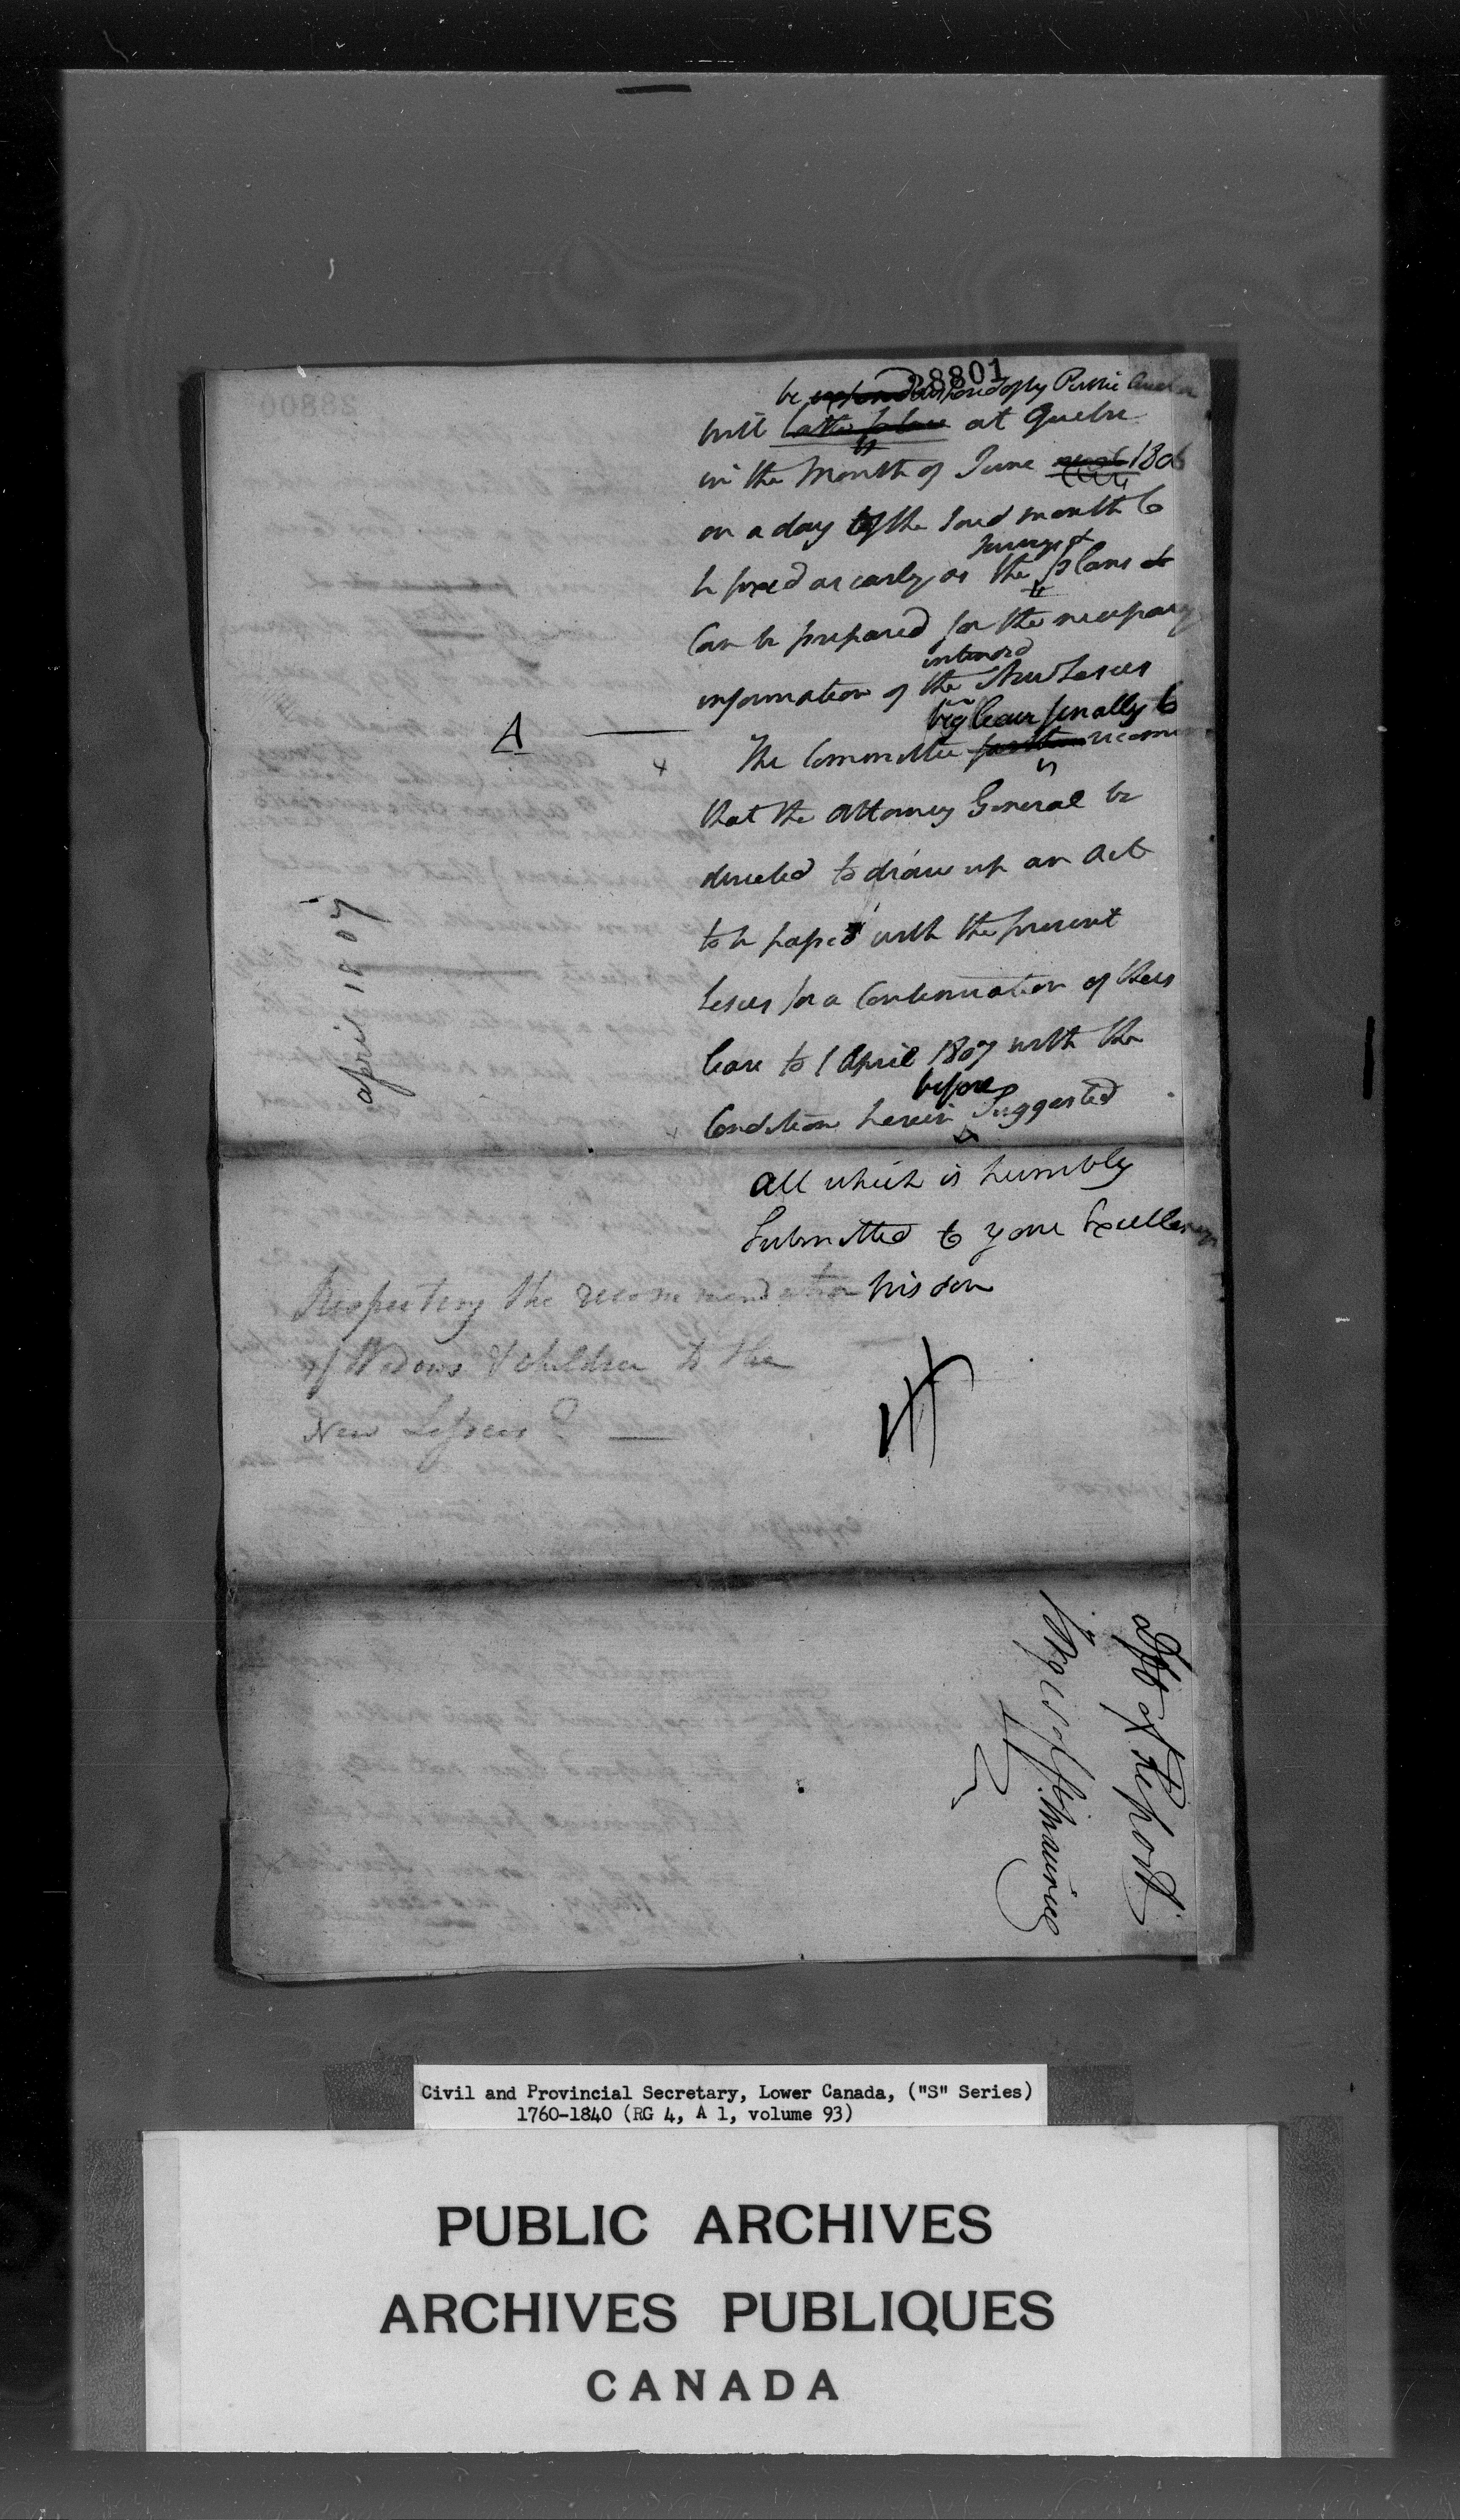 28801
be disposed of by Public Auction
will take place at Quebec
in the Month of June next 1806
on a day of the said month to
be fixed as early as the Surveys & plans &
can be prepared for the necessary
information of the intended New Lesees
A
The Committee further beg leave finally to recommend
that the Attorney General be
directed to draw up an Act
to be passed with the present
Lesees for a Continuation of their
lease to 1 April 1807 with the
Condition herein before Suggested
All which is humbly
Submitted to your Excellency's
wisdom
april 1807
Respecting the recommendation
of Widows & children to the
New Lessees? —
Dft of Report
Forges of St Maurice
Civil and Provincial Secretary, Lower Canada, ("S" Series)
1760-1840 (RG 4, A 1, volume 93)
PUBLIC ARCHIVES
ARCHIVES PUBLIQUES
CANADA